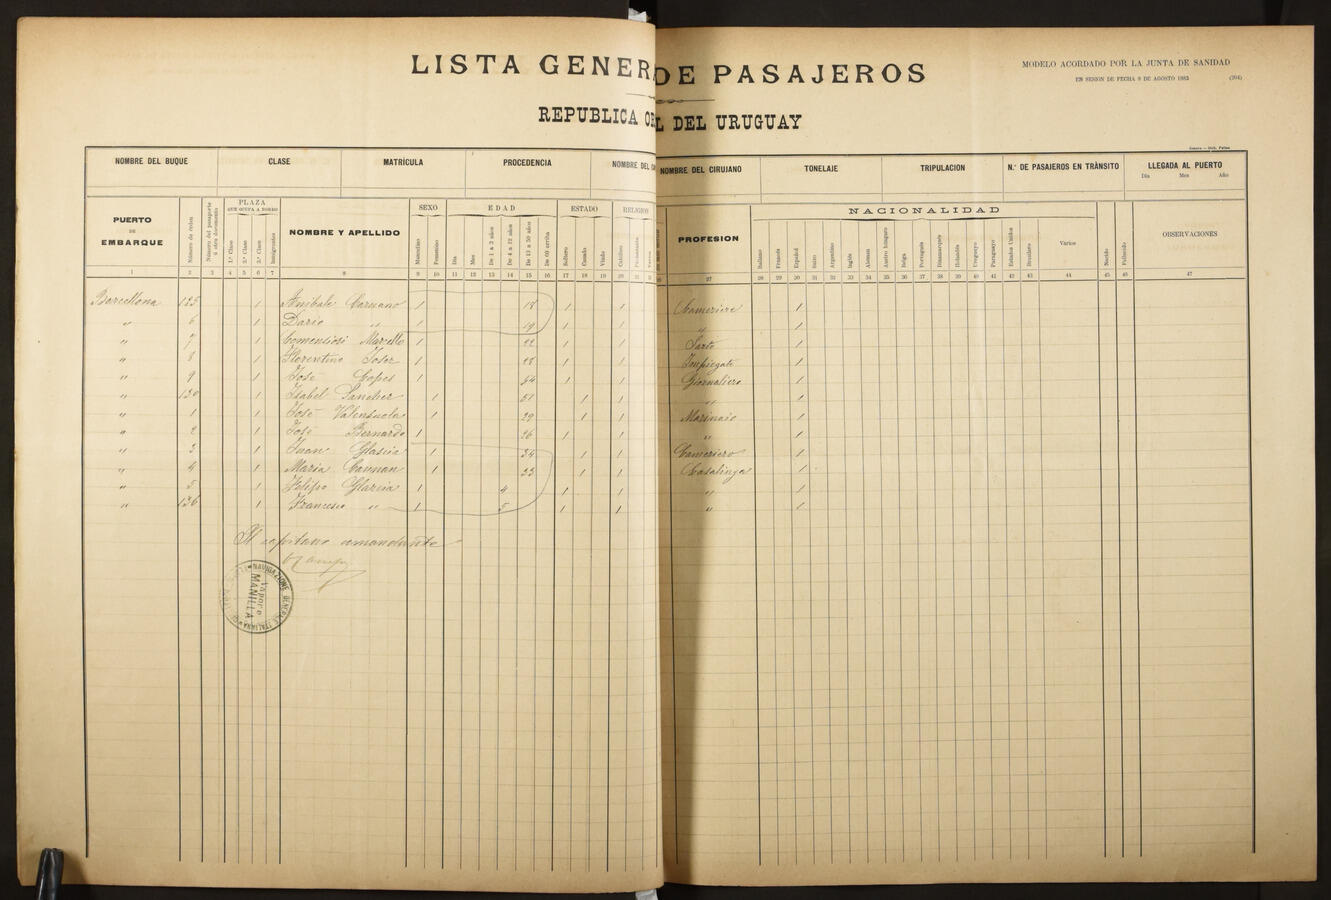 LISTA GENER DE PASAJEROS
MODELO ACORDADO POR LA JUNTA DE SANIDAD
EN SESION DE FECHA 8 DE AGOSTO 1883 (204)
REPUBLICA O L DEL URUGUAY
NOMBRE DEL BUQUE CLASE MATRÍCULA PROCEDENCIA NOMBRE DEL NOMBRE DEL CIRUJANO TONELAJE TRIPULACION N.º DE PASAJEROS EN TRÁNSITO LLEGADA AL PUERTO
Dia Mes Año
PUERTO DE EMBARQUE Número de orden Número del pasaporte ú otro documento PLAZA QUE OCUPA A BORDO 1.ª Clase 2.ª Clase 3.ª Clase Inmigrantes NOMBRE Y APELLIDO SEXO Masculino Femenino EDAD Dia Mes De 1 a 3 años De 4 a 12 años De 13 a 59 años De 60 arriba ESTADO Soltero Casado Viudo RELIGION Católico Protestante Varios PROFESION NACIONALIDAD Italiano Francés Español Suizo Argentino Inglés Aleman Austro húngaro Belga Portugués Dinamarqués Holandés Uruguayo Paraguayo Estados Unidos Brasilero Varios Nacido Fallecido OBSERVACIONES
1 2 3 4 5 6 7 8 9 10 11 12 13 14 15 16 17 18 19 20 21 27 28 29 30 31 32 33 34 35 36 37 38 39 40 41 42 43 44 45 46 47
Barcellona 125 / Anibale / 18 / / Cameriere /
" 6 / Dario " / 19 / / " /
" 7 / Marcello / 22 / / Sarto /
" 8 / Florentino / 28 / / Impiegato /
" 9 / José / 54 / / Giornaliero /
" 130 / Isabel Sancher / 51 / / " /
" 1 / José Valensuela / 29 / / Marinaio /
" 2 / José Bernardo / 26 / / " /
" 3 / Juan / 34 / / Cameriero /
" 4 / Maria / 23 / / Casalinga /
" 5 / Felipo Garcia / 4 / / " /
" 136 / Francesco " / 5 / / " /
Il capitano comandante
NAVIGAZIONE GENERALE ITALIANA
Vapore
MANILLA